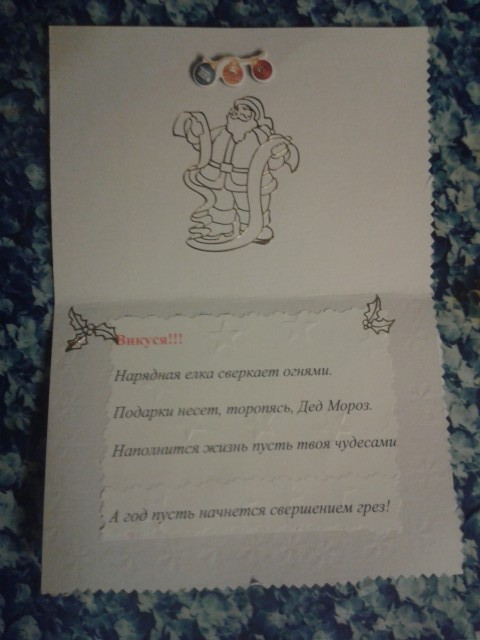 Викуся!!!
Нарядная елка сверкает огнями.
Подарки несет, торопясь, Дед Мороз.
Наполнится жизнь пусть твоя чудесами
А год пусть начнется свершением грез!